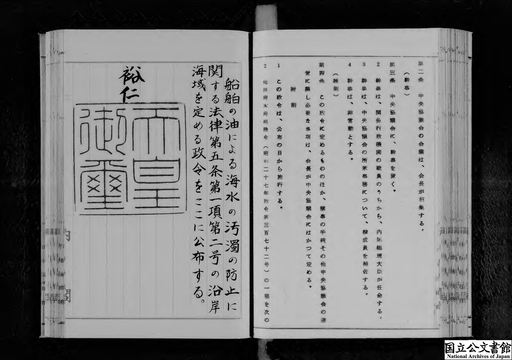 第二条 中央協議会の会議は、会長が招集する。
(幹事)
第三条 中央協議会に、幹事を置く。
2 幹事は、関係行政機関の職員のうちから、内閣総理大臣が任命する。
3 幹事は、中央協議会の所掌事務について、構成員を補佐する。
4 幹事は、非常勤とする。
(雑則)
第四条 この政令に定めるもののほか、議事の手続その他中央協議会の運
営に関し必要な事項は、会長が中央協議会にはかつて定める。
附則
1 この政令は、公布の日から施行する。
(昭和二十七年政令第三百七十二号)の一部を次の
船舶の油による海水の汚濁の防止に
関する法律第五条第一項第二号の沿岸
海域を定める政令をここに公布する。
裕仁
天皇
御璽
国立公文書館
National Archives of Japan